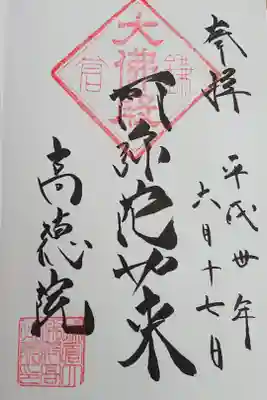 奉拝
平成卅年
六月十七日
大佛殿
鎌倉
阿弥陀如来
高徳院